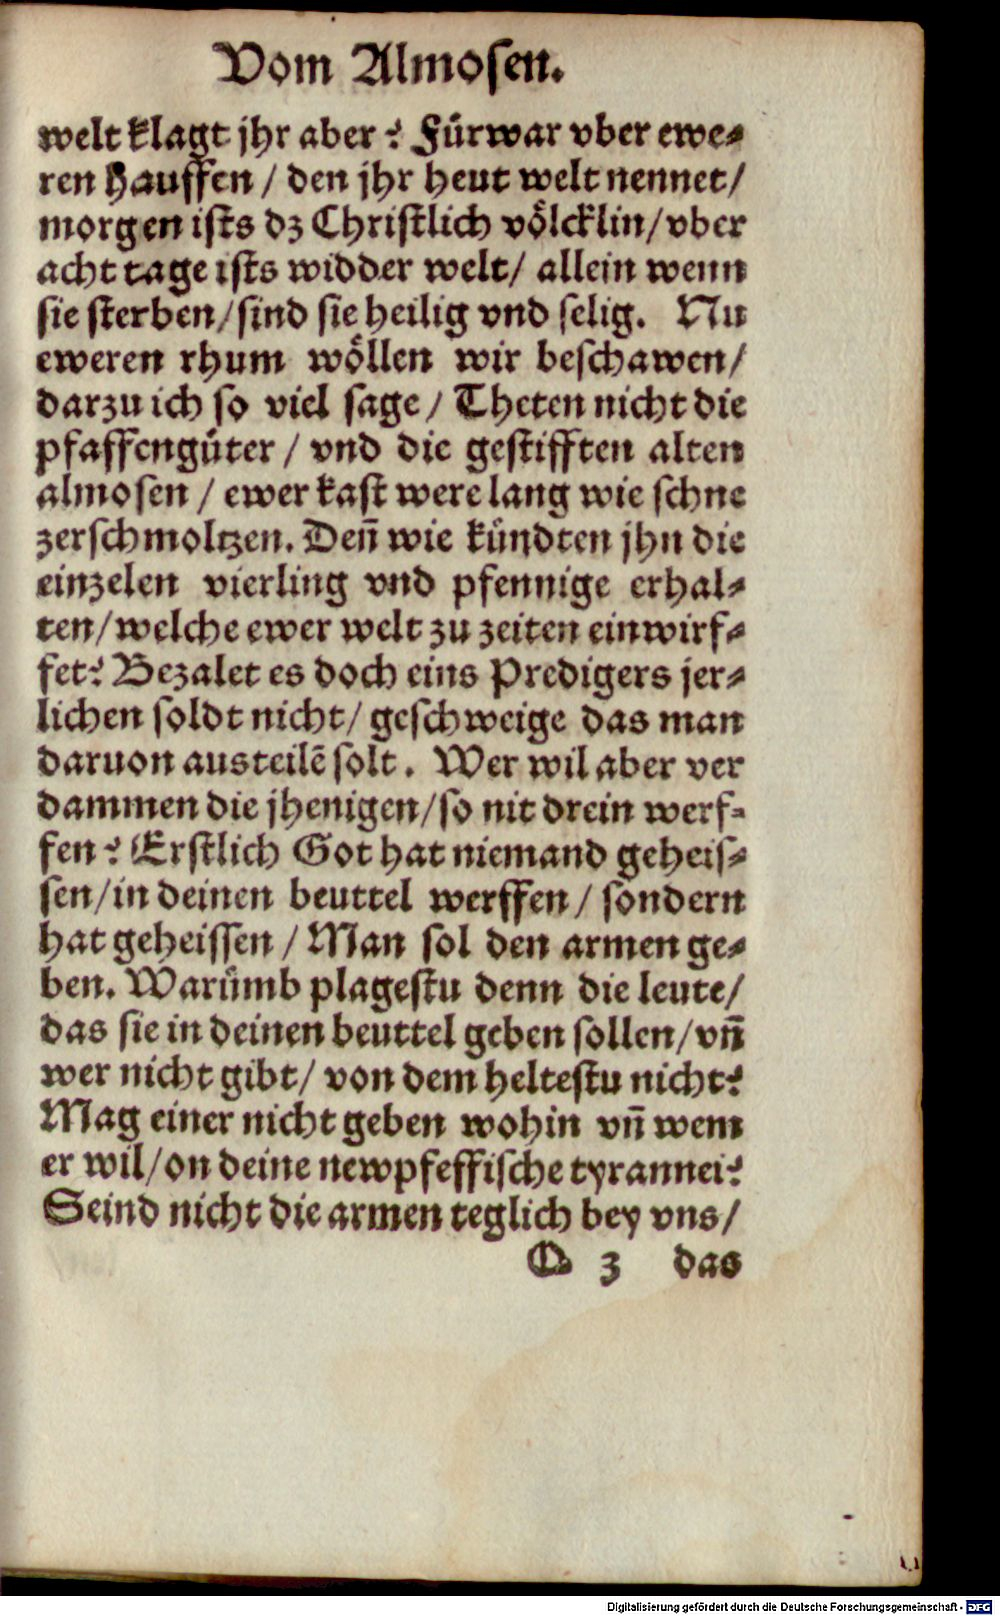 Vom Almosen.
welt klagt jhr aber? Fürwar vber ewe-
ren Hauffen / den jhr heut welt nennet/
morgen ists dz Christlich völcklin/vber
acht tage ists widder welt/ allein wenn
sie sterben/sind sie heilig vnd selig. Nu
eweren rhum wöllen wir beschawen/
darzu ich so viel sage / Theten nicht die
pfaffengüter / vnd die gestifften alten
almosen / ewer kast were lang wie schne
zerschmoltzen. Deñ wie kündten jhn die
einzelen vierling vnd pfennige erhal-
ten/welche ewer welt zu zeiten einwirf-
fet? Bezalet es doch eins Predigers jer-
lichen soldt nicht/ geschweige das man
daruon austeilē solt. Wer wil aber ver
dammen die jhenigen/so nit drein werf-
fen? Erstlich Got hat niemand geheis-
sen/in deinen beuttel werffen / sondern
hat geheissen / Man sol den armen ge-
ben. Warümb plagestu denn die leute/
das sie in deinen beuttel geben sollen/vñ
wer nicht gibt/ von dem heltestu nicht?
Mag einer nicht geben wohin vñ wem
er wil/on deine newpfeffische tyrannei?
Seind nicht die armen teglich bey vns/
Q 3 das
Digitalisierung gefördert durch die Deutsche Forschungsgemeinschaft - DFG